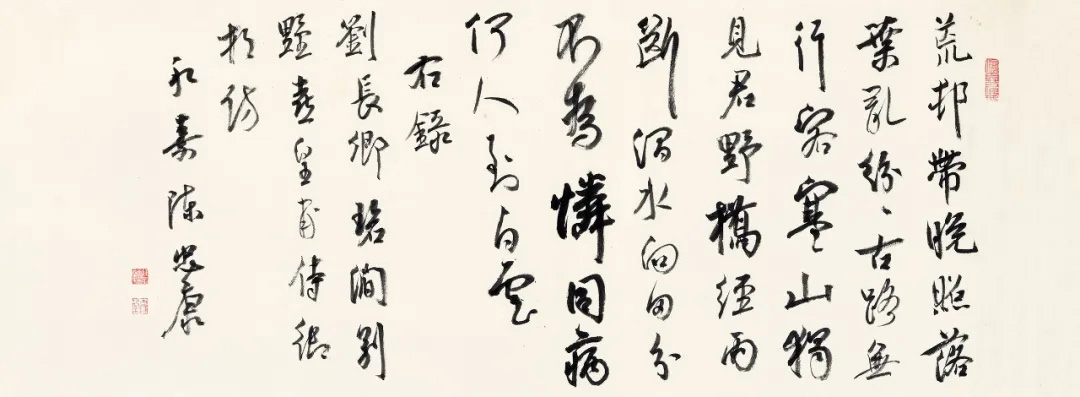 荒邨帶晚照落
葉亂紛〻古路無
行客寒山獨
見君野橋經雨
斷澗水向田分
不為憐同病
何人到白雲
右錄
劉長卿碧澗別
墅喜皇甫侍御
相訪
永嘉陳忠康